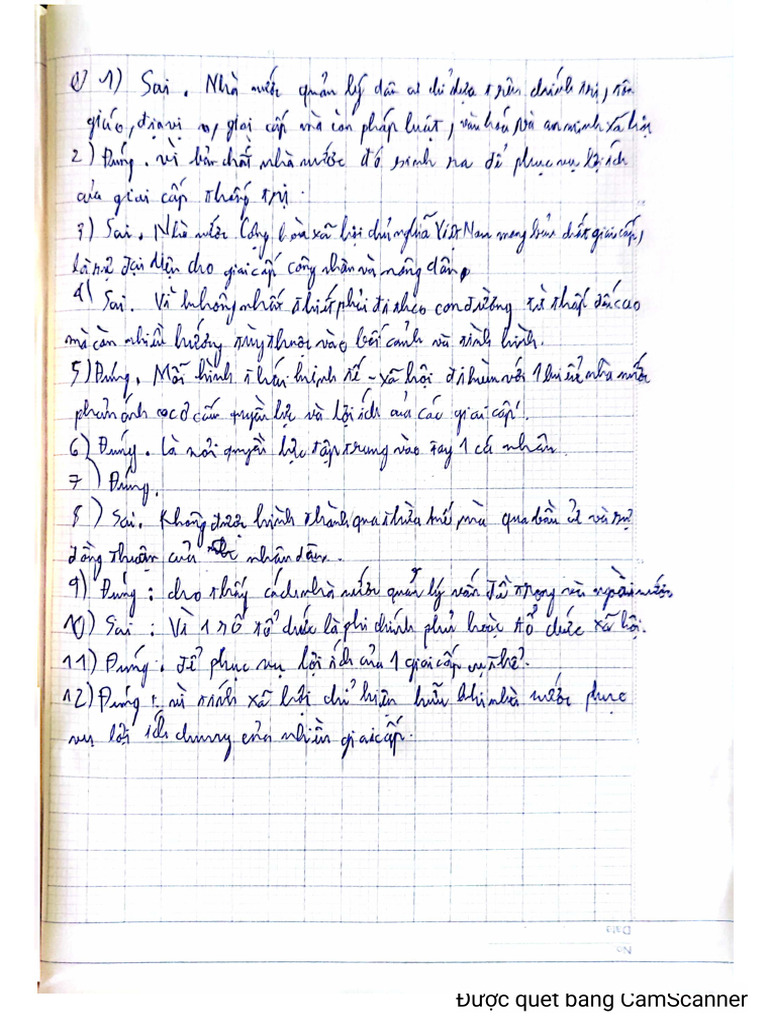 1) Sai. Nhà nước quản lý dân cư chỉ dựa trên chính trị, tôn
giáo, địa vị, giai cấp mà còn pháp luật, văn hoá và an ninh xã hội
2) Đúng. vì bản chất nhà nước đó sinh ra để phục vụ lợi ích
của giai cấp thống trị.
3) Sai. Nhà nước Cộng hòa xã hội chủ nghĩa Việt Nam mang bản chất giai cấp,
là sự đại diện cho giai cấp công nhân và nông dân,
4) Sai. Vì không nhất thiết phải đi theo con đường từ thấp đến cao
mà còn nhiều hướng tùy thuộc vào bối cảnh và tình hình.
5) Đúng. Mỗi hình thái kinh tế - xã hội đi kèm với 1 kiểu nhà nước
phản ánh cơ cấu quyền lực và lợi ích của các giai cấp.
6) Đúng. Là nơi quyền lực tập trung vào tay 1 cá nhân.
7) Đúng.
8) Sai. Không được hình thành qua thừa kế, mà qua bầu cử và sự
đồng thuận của nhân dân.
9) Đúng: cho thấy cách nhà nước quản lý vấn đề trong và ngoài nước
10) Sai: Vì 1 số tổ chức là phi chính phủ hoặc tổ chức xã hội.
11) Đúng. để phục vụ lợi ích của 1 giai cấp cụ thể.
12) Đúng: vì tính xã hội chỉ hiện hữu khi nhà nước phục
vụ lợi ích chung của nhiều giai cấp.
No
Date
Được quét bằng CamScanner